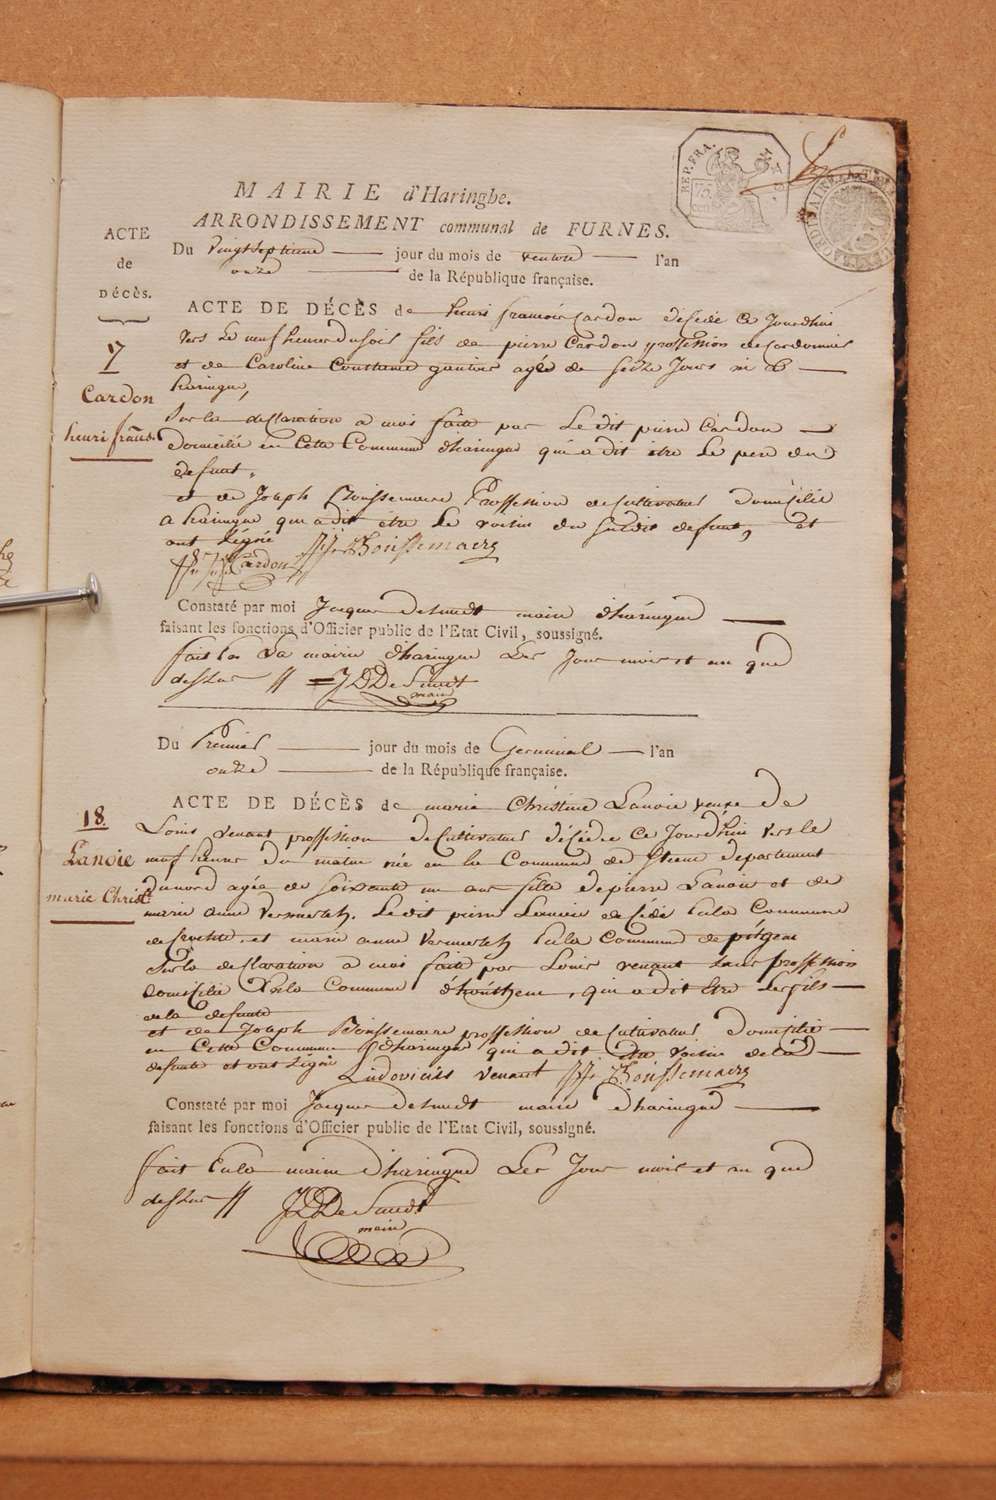 REP. FRA.
MAIRIE d'Haringhe.
ARRONDISSEMENT communal de FURNES.
ACTE
de
DÉCÈS.
Du vingtseptieme jour du mois de ventose l'an
onze de la République française.
ACTE DE DÉCÈS de henri francois Cardon décédé Ce Jourdhui
vers Le neuf heures du soir fils de pierre Cardon proffession de Cordonnier
et de Caroline Constance gautier agée de seize Jours né a
haringue,
17
Cardon
henri frans.
Sur la declaration a moi faite par Le dit pierre Cardon
domicilié en Cette Commune dharingue qui a dit être Le pere du
defunt.
et de Joseph Boussemaere Proffession de Cultivateur domicilié
a haringue qui a dit être Le voisin du susdit defunt, et
ont signé
Cardon J: Boussemaere
Constaté par moi Jacques desmedt maire dharingue
faisant les fonctions d'Officier public de l'Etat Civil, soussigné.
fait La mairie dharingue Les Jour mois et an que
dessus // J D De Smedt
maire
Du Premier jour du mois de Germinal l'an
onze de la République française.
ACTE DE DÉCÈS de marie Christine Lanoie veuve de
18.
Lanoie
marie Christ.
Louis venant proffession de Cultivateur décédée Ce Jourdhui vers le
neuf heures du matin née en la Commune de Steene departement
du nord agée de soixante un ans fille de pierre Lanoie et de
marie anne Vermersch. Le dit pierre Lanoie decédé La Commune
de et marie anne Vermersch La Commune de pitgam
Sur la declaration a moi faite par Louis venant sans proffession
domicilié La Commune d'houtheme, qui a dit être Le fils
de la defunte
et de Joseph Boussemaere proffession de Cultivateur domicilié
en Cette Commune dharingue qui a dit être voisin de la
defunte et ont signé Ludovicus venant J: Boussemaere
Constaté par moi Jacques desmedt maire dharingue
faisant les fonctions d'Officier public de l'Etat Civil, soussigné.
fait La mairie dharingue Les Jour mois et an que
dessus // J D De Smedt
maire